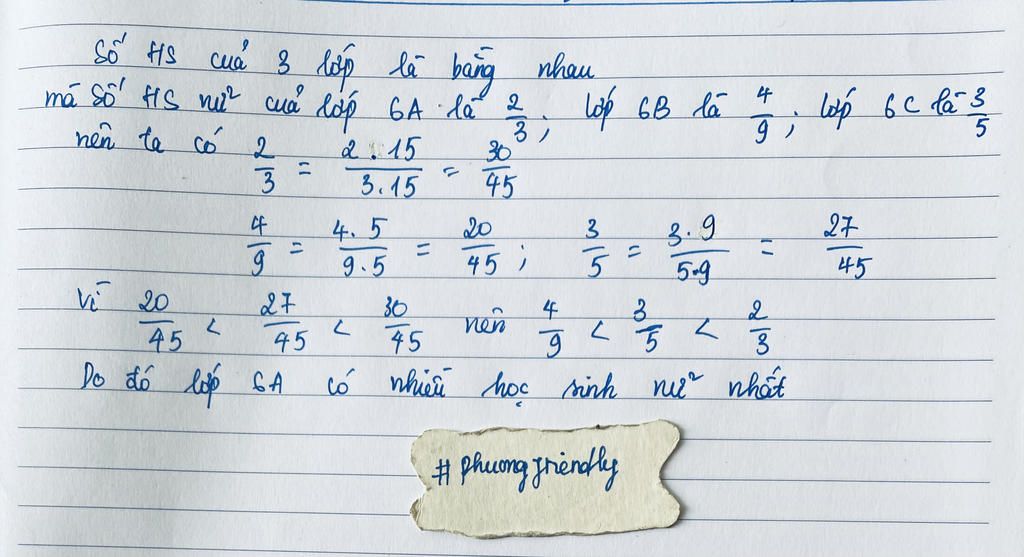 Số HS của 3 lớp là bằng nhau
mà Số HS nữ của lớp 6A là 2/3; lớp 6B là 4/9; lớp 6C là 3/5
nên ta có 2/3 = 2.15/3.15 = 30/45
4/9 = 4.5/9.5 = 20/45; 3/5 = 3.9/5.9 = 27/45
Vì 20/45 < 27/45 < 30/45 nên 4/9 < 3/5 < 2/3
Do đó lớp 6A có nhiều học sinh nữ nhất
#phuongfriendly